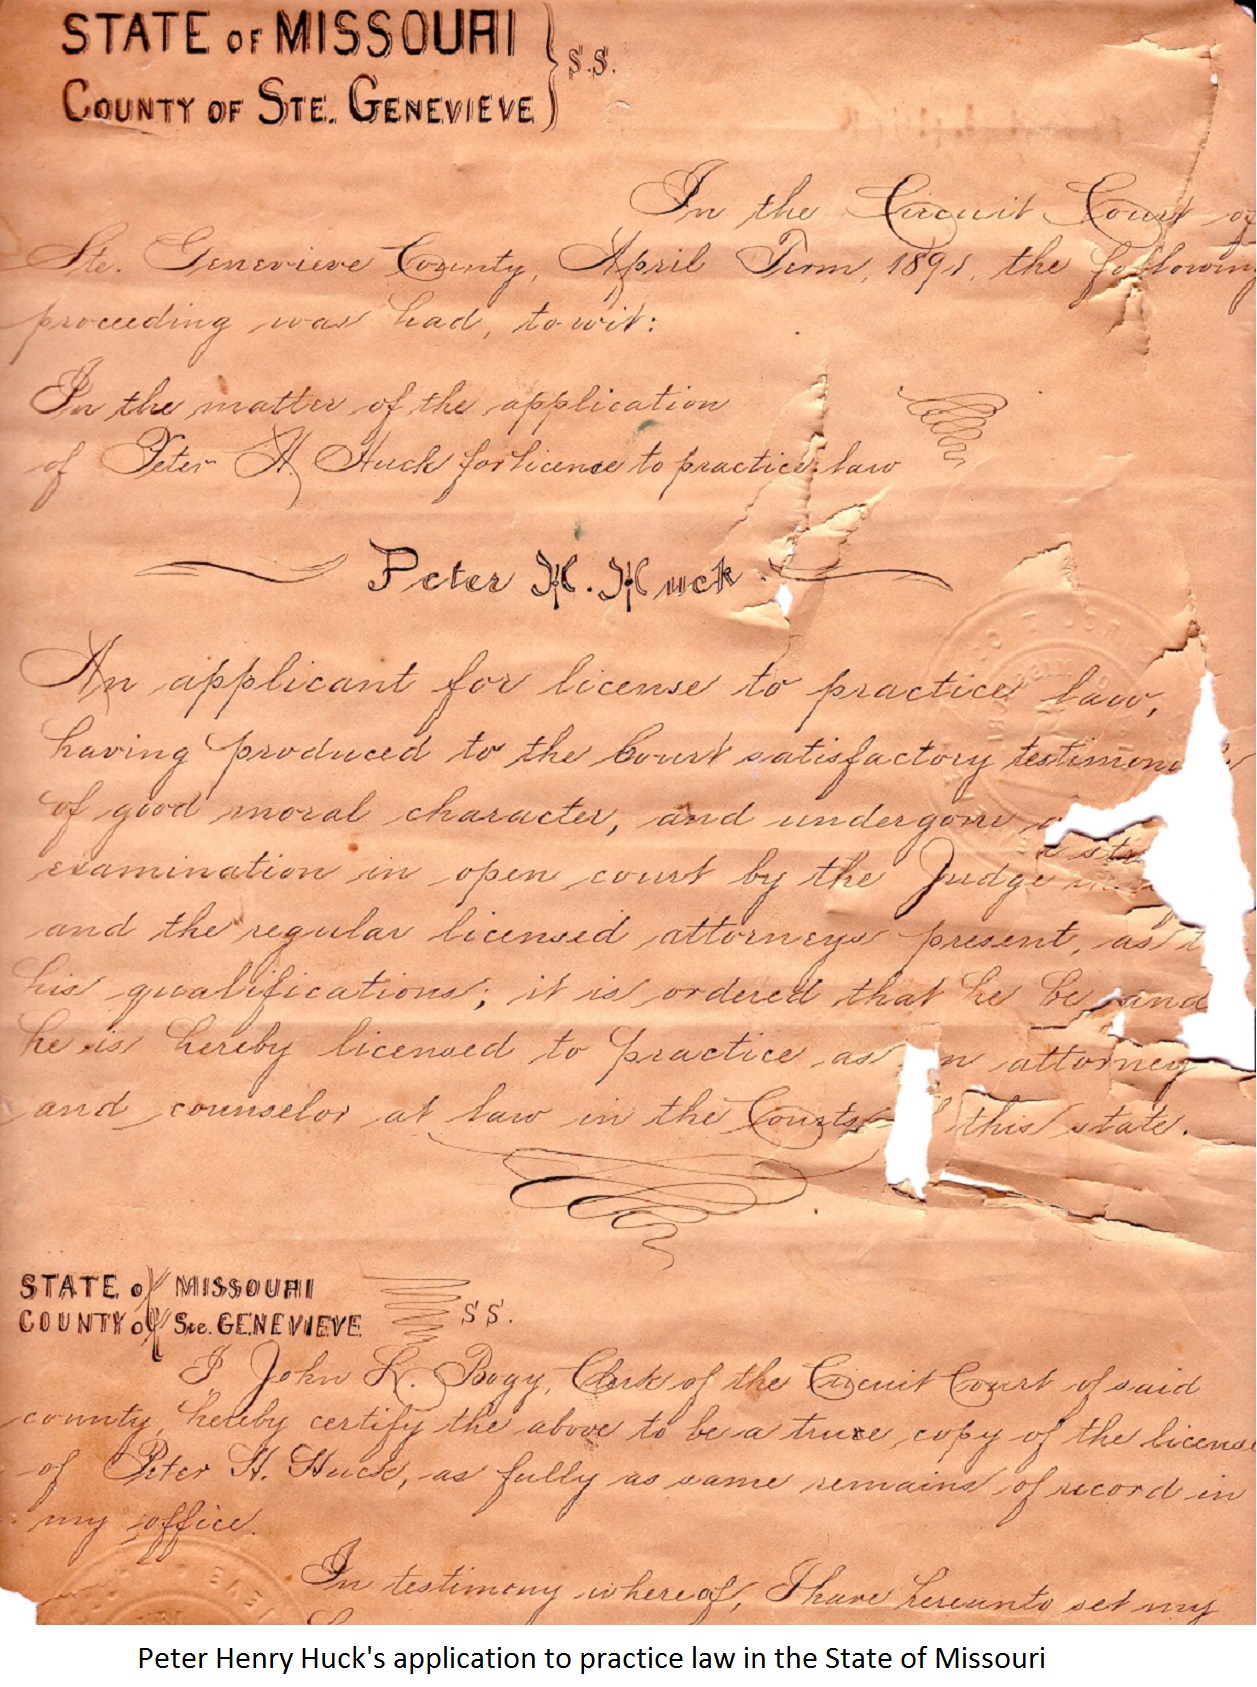 STATE OF MISSOURI
COUNTY OF STE. GENEVIEVE
S.S.
In the Circuit Court of
Ste. Genevieve County, April Term, 1891, the following
proceeding was had, to-wit:
In the matter of the application
of Peter H. Huck for license to practice law
Peter H. Huck
An applicant for license to practice law,
having produced to the Court satisfactory
of good moral character, and undergone
examination in open court by the Judge
and the regular licensed attorneys present, as
his qualifications; it is ordered that he be and
he is hereby licensed to practice as attorney
and counselor at law in the Courts this state.
STATE of MISSOURI
COUNTY of Ste. GENEVIEVE
S S.
I John L. Bogy, Clerk of the Circuit Court of said
county, hereby certify the above to be a true copy of the license
of Peter H. Huck, as fully as same remains of record in
my office.
In testimony whereof, I have hereunto set my
Peter Henry Huck's application to practice law in the State of Missouri